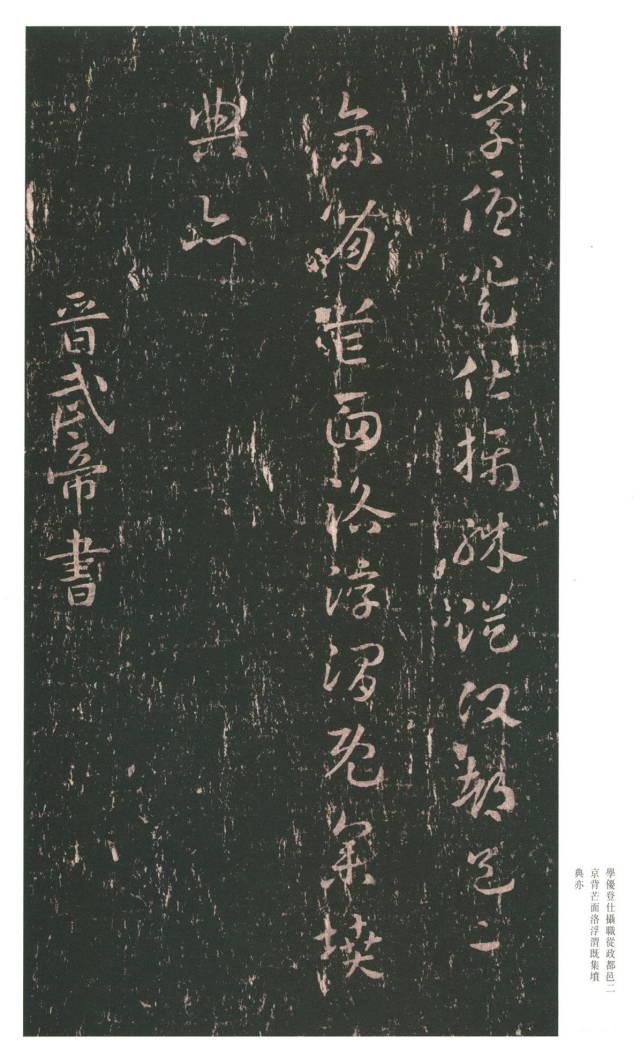 學優登仕攝職從政都邑二
京背芒面洛浮渭既集墳
典亦
晉武帝書
學優登仕攝職從政都邑二
京背芒面洛浮渭既集墳
典亦